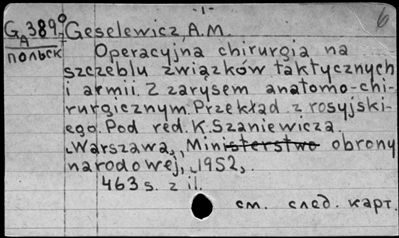 -1-
6
GA389° Geselewicz, A.M.
польск
Operacyjna chirurgia na
szczeblu związków taktycznych
i armii. Z zarysem anatomo-chi-
rurgicznym. Przekład z rosyjski-
ego. Pod red. K. Szaniewicza.
Warszawa, Ministerstwo obrony
narodowej, 1952,
463 s. z il.
см. след. карт.